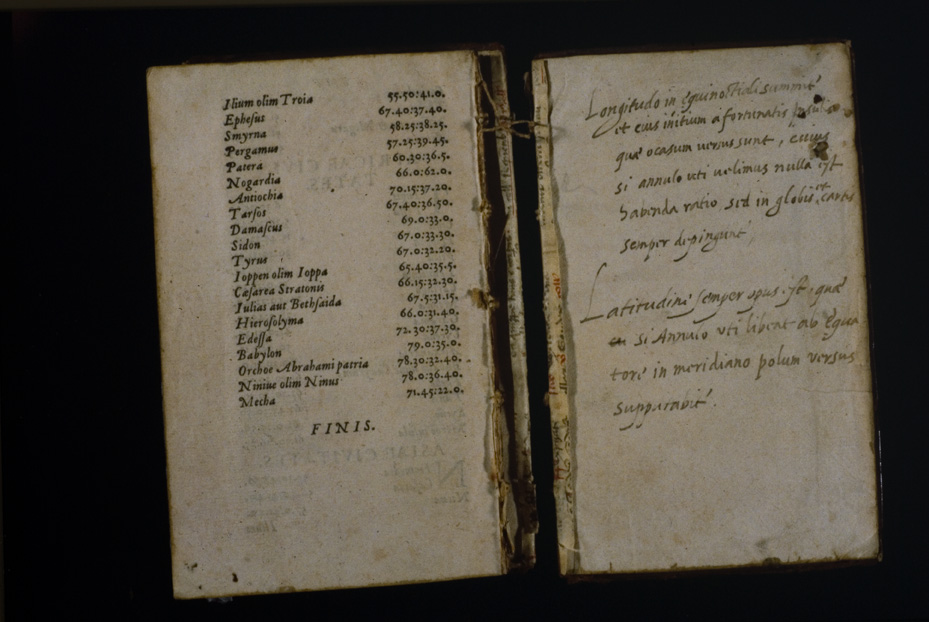 Ilium olim Troia 55.50:41.0.
Ephesus 67.40:37.40.
Smyrna 58.25:38.25.
Pergamus 57.25:39.45.
Patera 60.30:36.5.
Nogardia 66.0:62.0.
Antiochia 70.15:37.20.
Tarsos 67.40:36.50.
Damascus 69.0:33.0.
Sidon 67.0:33.30.
Tyrus 67.0:32.20.
Ioppen olim Ioppa 65.40:35.5.
Cæsarea Stratonis 66.15:32.30.
Iulias aut Bethsaida 67.5:31.15.
Hierosolyma 66.0:31.40.
Edessa 72.30:37.30.
Babylon 79.0:35.0.
Orchoe Abrahami patria 78.30:32.40.
Niniue olim Ninus 78.0:36.40.
Mecha 71.45:22.0.
FINIS.
Longitudo in equinoctiali
et eius initium a fortunatis
quæ ocasum versus sunt, cuius
si annulo uti uelimus nulla est
habenda ratio sed in globis et cartis
semper depingunt,
Latitudine semper opus est, quæ
si Annulo uti libeat ab equa
tore in meridiano polum versus